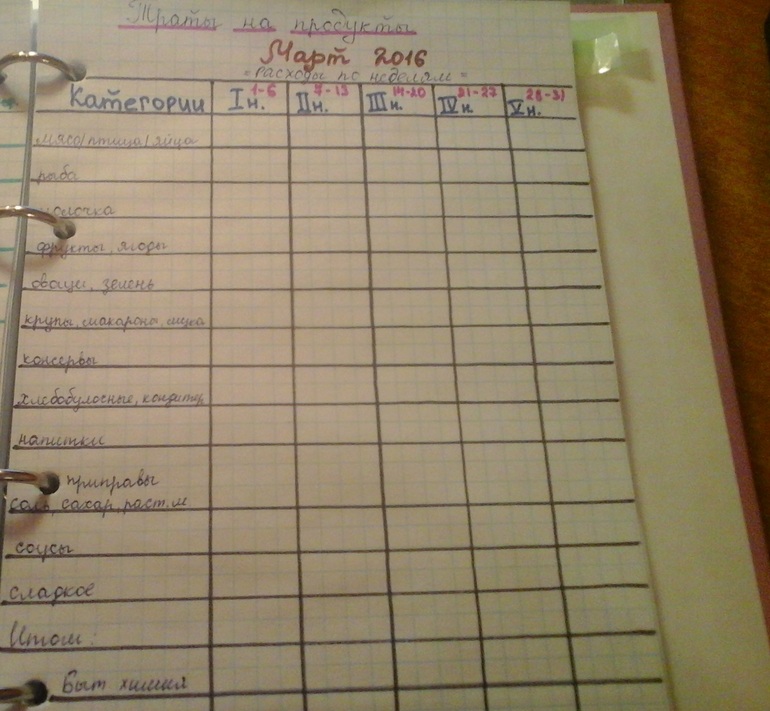 Траты на продукты
Март 2016
= Расходы по неделям =
Категории I н. 1-6 II н. 7-13 III н. 14-20 IV н. 21-27 V н. 28-31
мясо/птица/яйца
рыба
молочка
фрукты, ягоды
овощи, зелень
крупы, макароны, мука
консервы
хлебобулочные, кондитер
напитки
приправы
соль, сахар, раст.м
соусы
сладкое
Итого:
Быт химия